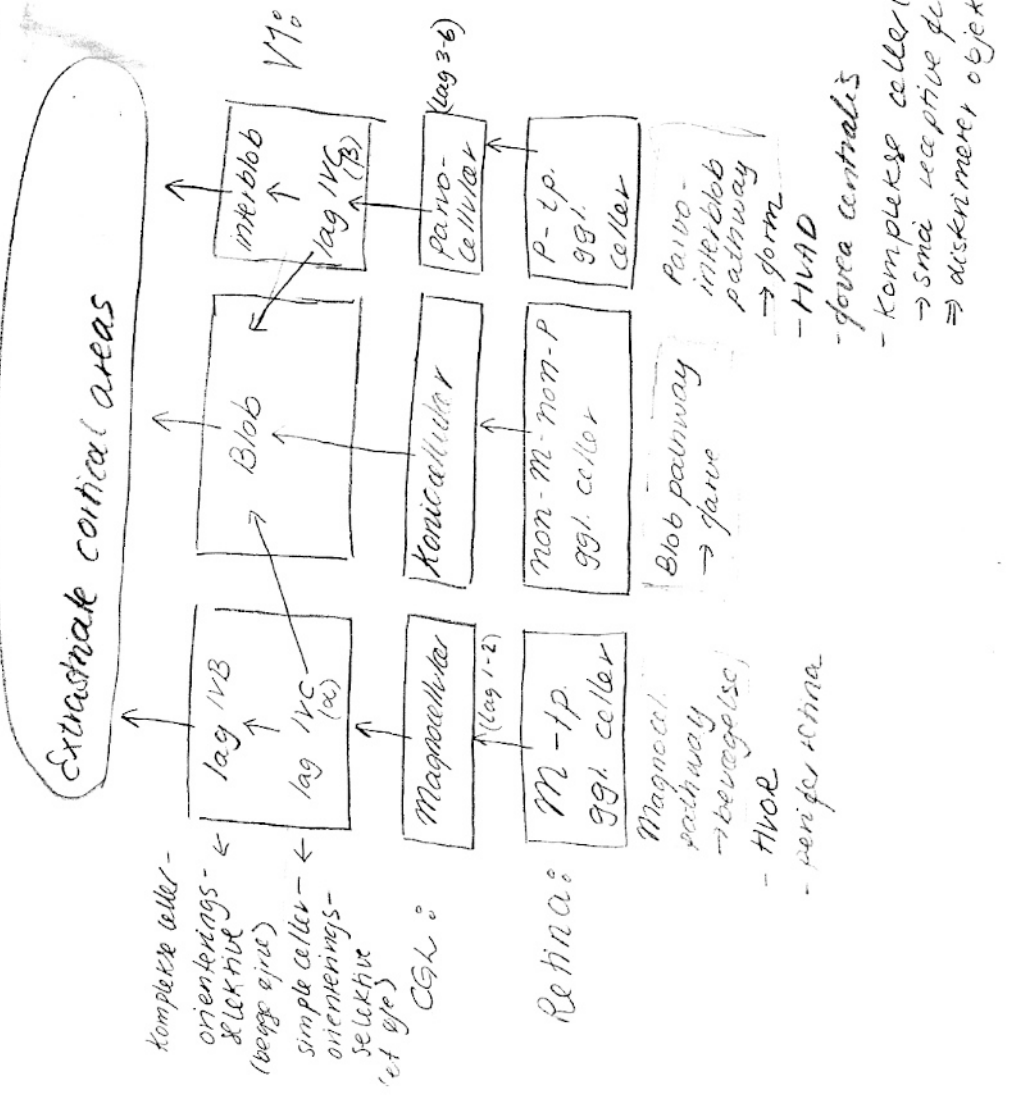 Extrastriate cortical areas
V1:
Komplekse celler -
orienterings-
selektive
(begge øjne)
simple celler -
orienterings-
selektive
(et øje)
lag IVB
lag IVC
(α)
Blob
interblob
lag IVC
(β)
CGL:
Magnocellulær
(lag 1-2)
Koniocellulær
Parvo-
cellulær
(lag 3-6)
Retina:
M-tp.
ggl. celler
non-M-non-P
ggl. celler
P-tp.
ggl.
celler
Magnocel.
pathway
→ bevægelse
- HVOR
- perifer retina
Blob pathway
→ farve
Parvo-
interblob
pathway
→ form
- HVAD
- fovea centralis
- Komplekse celler
→ små receptive
⇒ diskriminerer